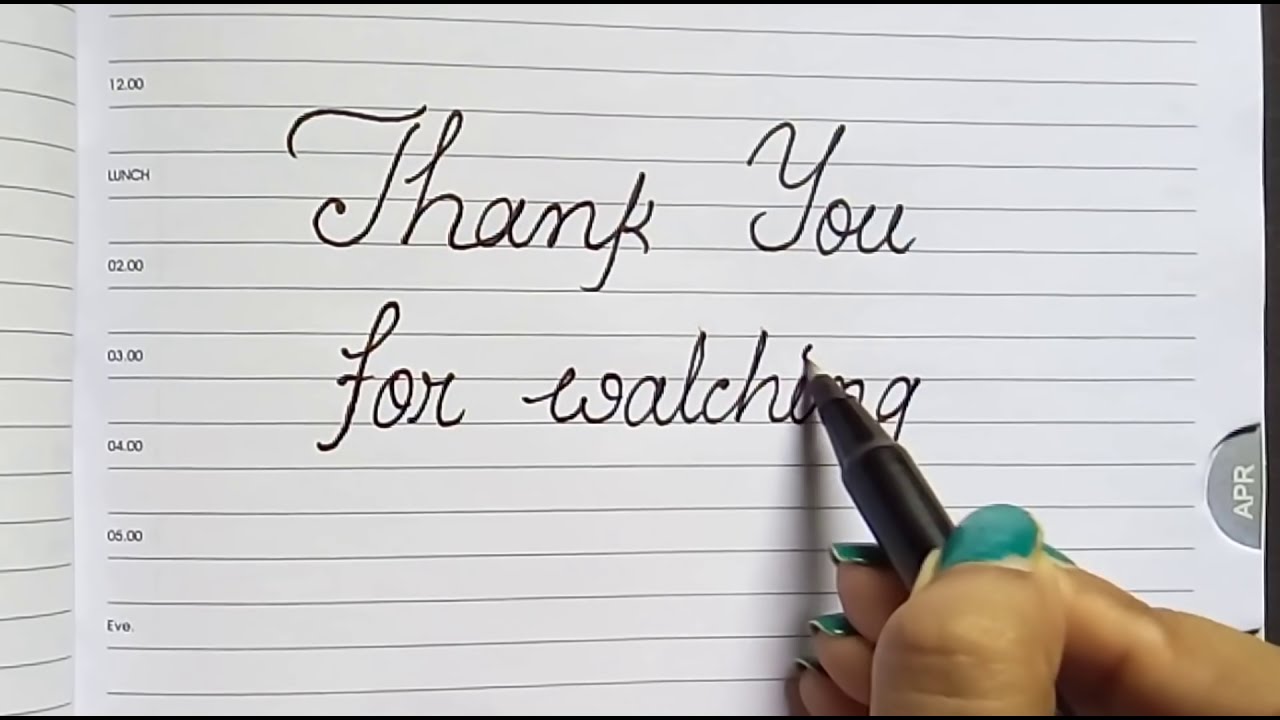 12.00
Thank You
LUNCH
02.00
for watching
03.00
04.00
APR
05.00
Eve.